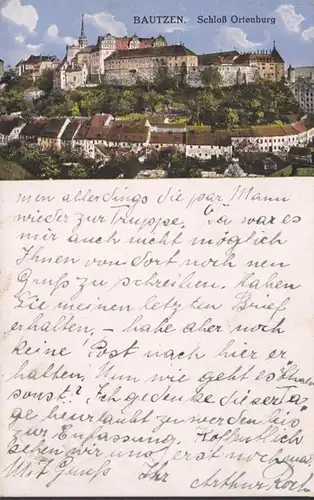 BAUTZEN. Schloß Ortenburg
men allerdings die par Mann
wieder zur Truppe. Da war es
mir auch nicht möglich
Ihnen von dort noch nen
Gruß zu schreiben. Haben
Sie meinen letzten Brief
erhalten, – habe aber noch
keine Post nach hier er
halten. Nun wie geht es Ihnen
sonst? Ich gedenke diese Ta
ge beurlaubt zu werden bis
zur Entlassung. Hoffentlich
sehen wir uns erst nochmal
Mit Gruß Ihr Arthur Koch